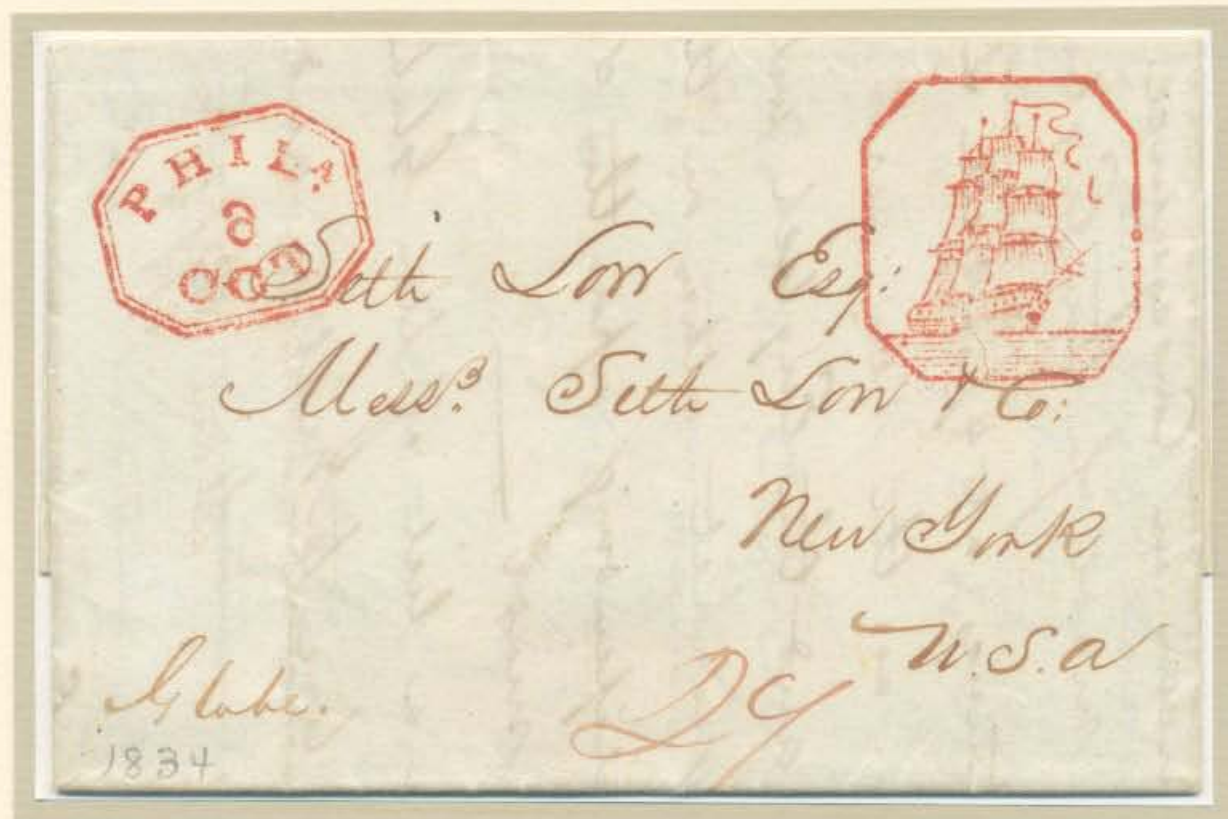 PHILA.
6
OCT
Seth Low Esq:
Messrs. Seth Low & Co:
New York
U.S.a
Globe.
27
1834